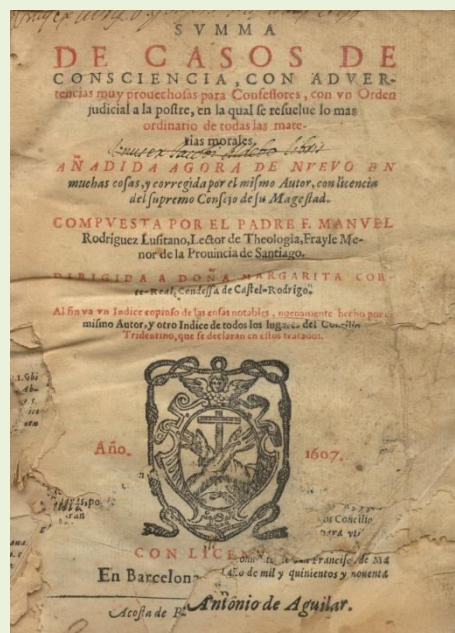 SVMMA
DE CASOS DE
CONSCIENCIA, CON ADVER-
tencias muy prouechosas para Confessores, con vn Orden
judicial a la postre, en la qual se resuelue lo mas
ordinario de todas las mate-
rias morales.
AÑADIDA AGORA DE NVEVO EN
muchas cosas, y corregida por el mismo Autor, con licencia
del supremo Consejo de su Magestad.
COMPVESTA POR EL PADRE F. MANVEL
Rodriguez Lusitano, Lector de Theologia, Frayle Me-
nor de la Prouincia de Santiago.
DIRIGIDA A DOÑA MARGARITA COR-
te-Real, Condessa de Castel-Rodrigo.
Al fin va vn Indice copioso de las cosas notables, nueuamente hecho por el
mismo Autor, y otro Indice de todos los lugares del Concilio
Tridentino, que se declaran en estos tratados.
Año. 1607.
Concilio
CON LICEN
Francisc. de
En Barcelona
año de mil y quinientos y nouenta
Acosta de
Antonio de Aguilar.